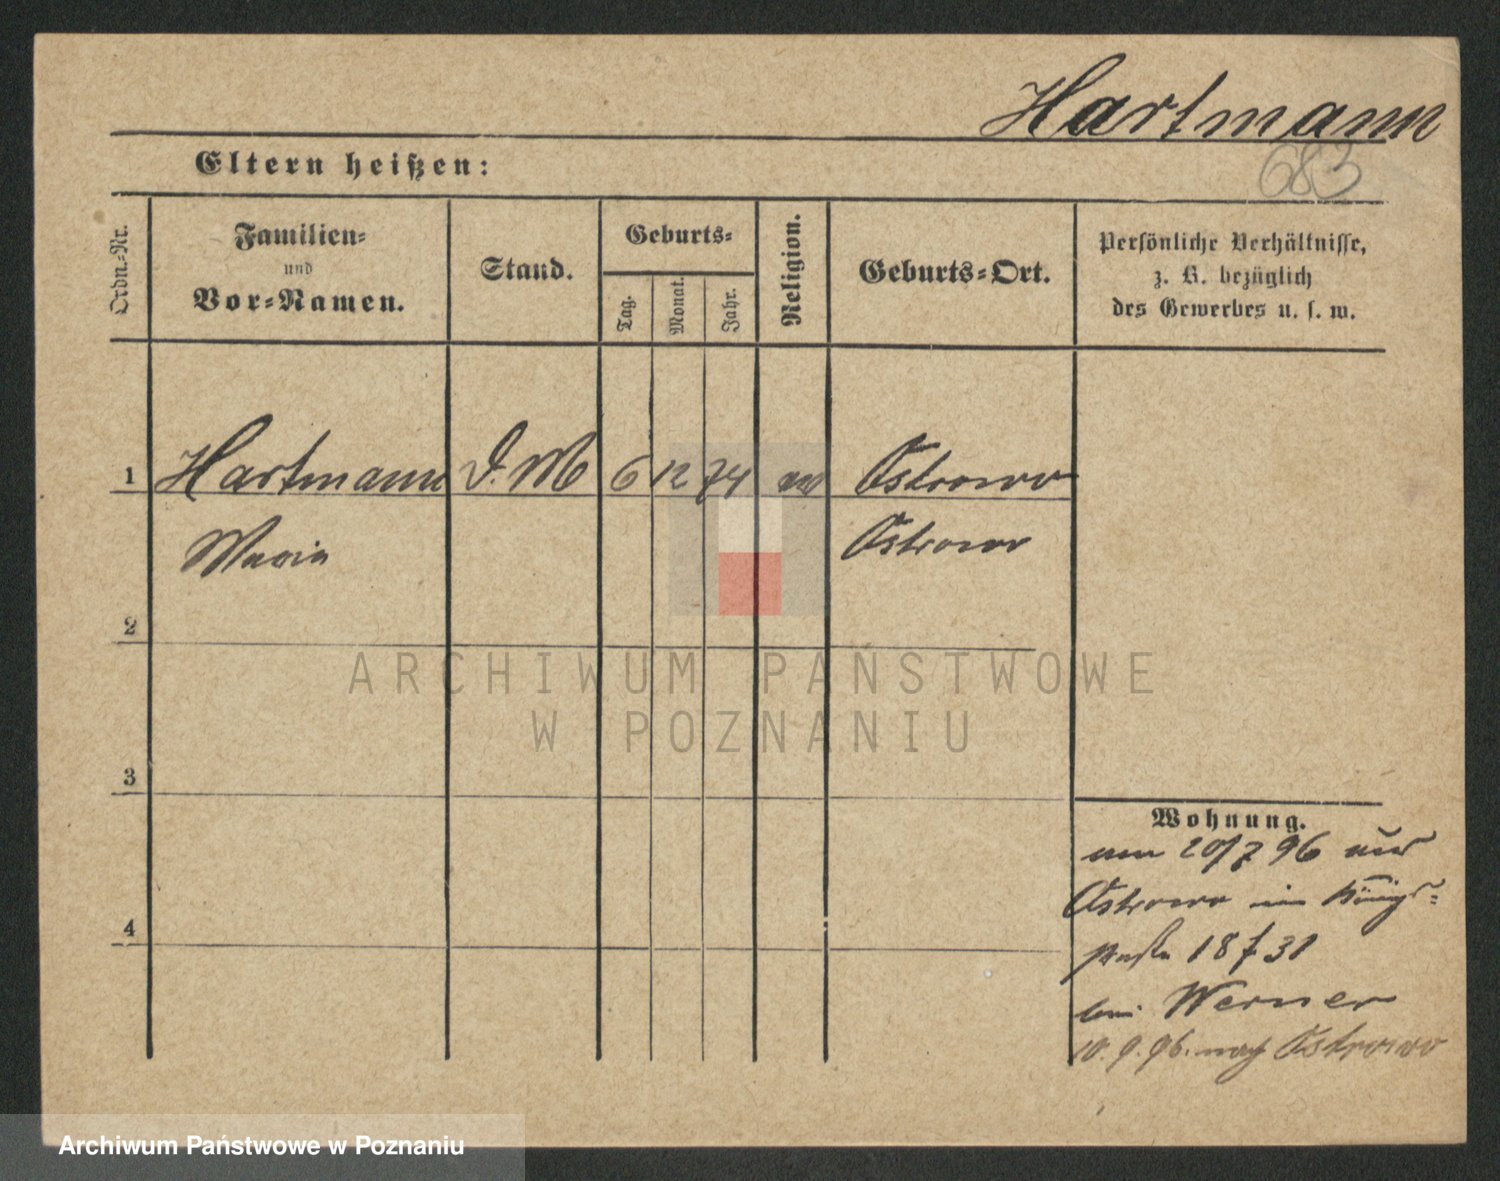 Hartmann
683
Eltern heißen:
Ordn.-Nr.
Familien-
und
Vor-Namen.
Stand.
Geburts-
Tag.
Monat.
Jahr.
Religion.
Geburts-Ort.
Persönliche Verhältnisse,
z. B. bezüglich
des Gewerbes u. s. w.
1 Hartmann D. M 6 12 74 Ostrowo
Maria Ostrowo
2
3
4
Wohnung.
am 20/7 96 aus
Ostrowo in Königs-
18 31
bei Werner
10. 9. 96. nach Ostrowo
ARCHIWUM PAŃSTWOWE
W POZNANIU
Archiwum Państwowe w Poznaniu